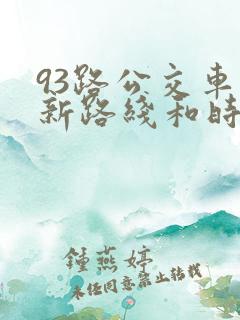 93路公交车
新路线和时
钟燕婷
未经同意禁止转载